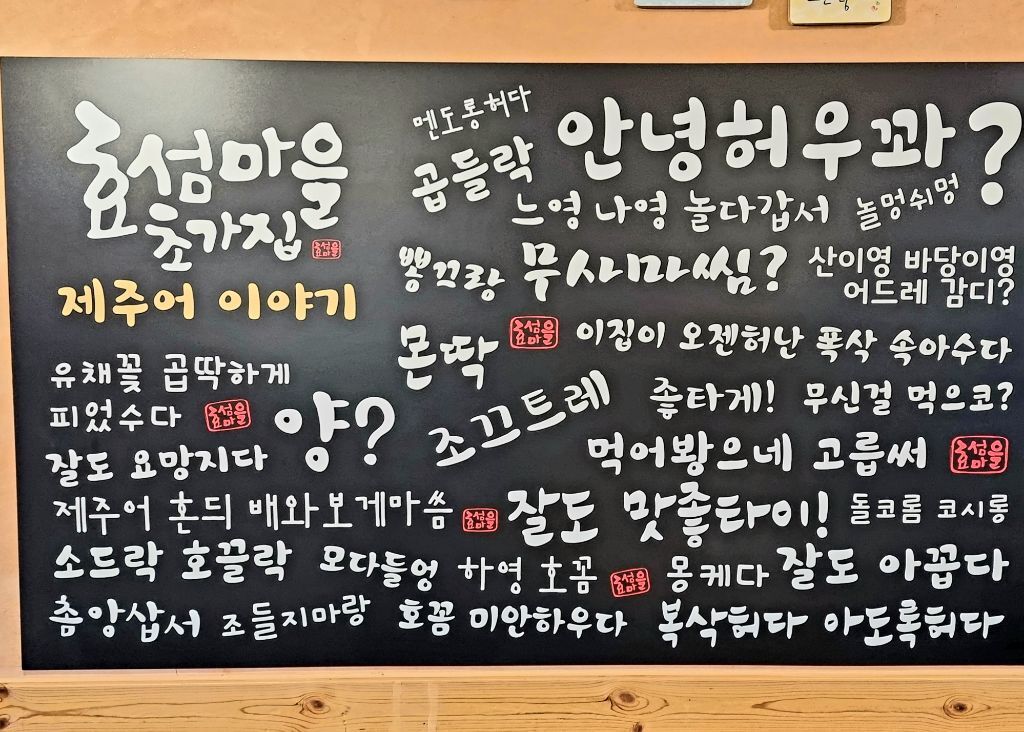 효섬마을
초가집
효섬마을
제주어 이야기
유채꽃 곱딱하게
피었수다
효섬마을
양?
잘도 요망지다
제주어 혼듸 배와보게마씀
효섬마을
소드락 호끌락
모다들엉
하영 호꼼
효섬마을
촘앙삽서
조들지마랑
호꼼 미안하우다
멘도롱허다
곱들락
안녕허우꽈?
느영 나영 놀다갑서
놀멍쉬멍
뽕끄랑
무사마씸?
산이영 바당이영
어드레 감디?
몬딱
효섬마을
이집이 오젠허난 폭삭 속아수다
조끄트레
좋타게!
무신걸 먹으코?
먹어봥으네 고릅써
효섬마을
잘도 맛좋다이!
돌코롬 코시롱
몽케다
잘도 아꼽다
복삭허다
아도록허다